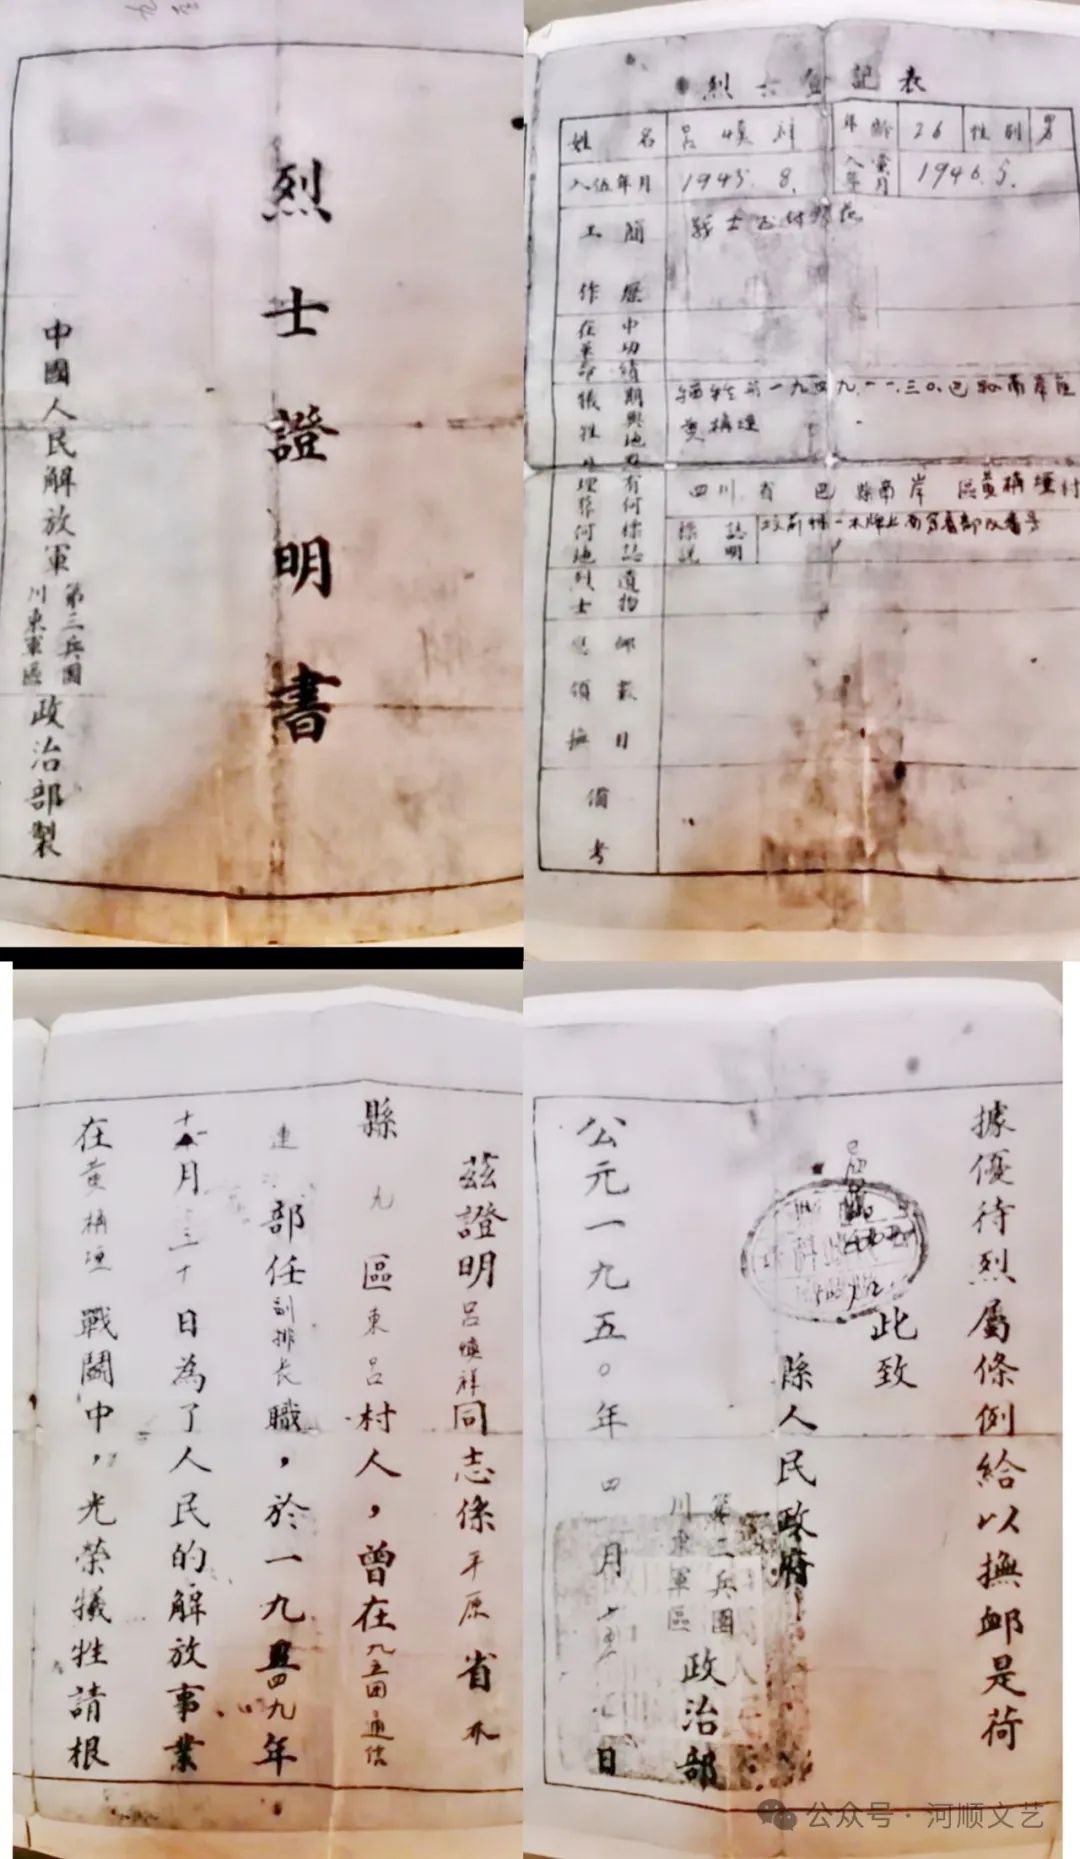 烈士證明書
中國人民解放軍
第三兵團
川東軍區
政治部製
烈士登記表
姓名
呂煥祥
年齡
26
性别
男
入伍年月
1945.8.
入黨年月
1946.5.
工作簡歷
战士
在革命中功績
犧牲日期與地点
犧牲於一九四九.一一.三〇.巴縣南岸區
黄桷埡
埋葬何地有何標誌
四川省巴縣南岸區黄桷埡村
標誌說明
坟前插一木牌上面寫着部队番号
烈士遺物
備考
茲證明呂煥祥同志係平原省
縣九區東呂村人,曾在九五团通信
連部任副排长職,於一九四九年
十一月三十日為了人民的解放事業
在黄桷埡戰鬪中,光榮犧牲請根
據優待烈屬條例給以撫卹是荷
此致
縣人民政府
第三兵團
川東軍區
政治部
公元一九五〇年四月
日
公众号·河顺文艺